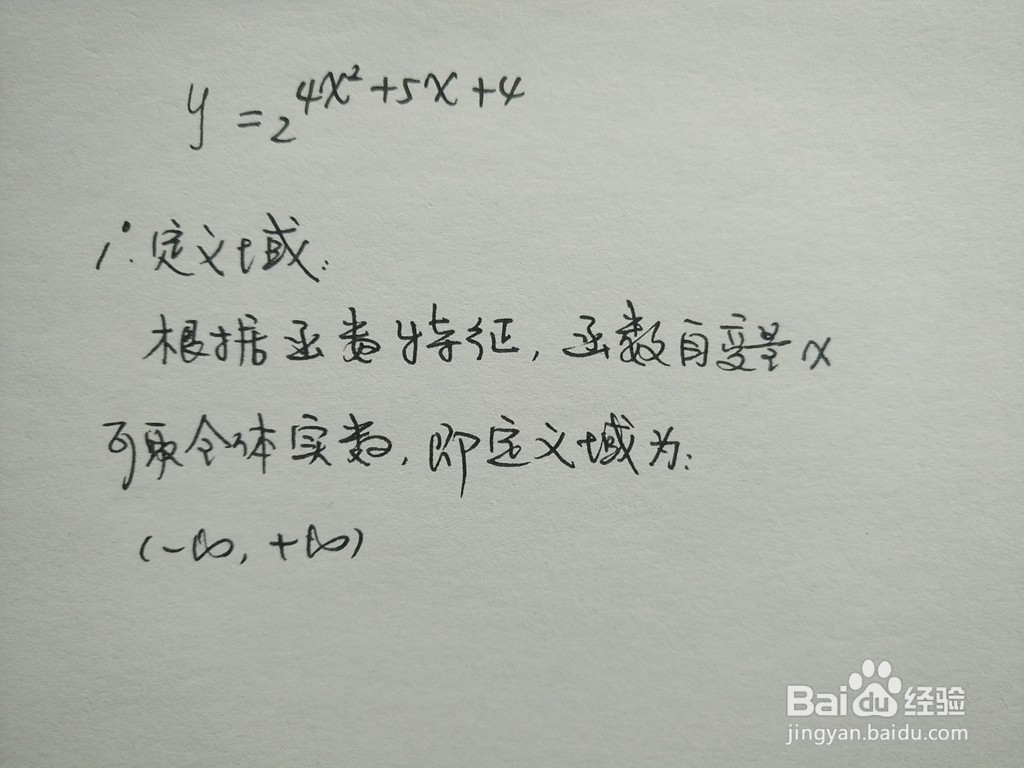 y = 2^{4x²+5x+4}
1°. 定义域:
根据函数特征, 函数自变量x
可取全体实数, 即定义域为:
(-∞, +∞)
Baidu经验
jingyan.baidu.com